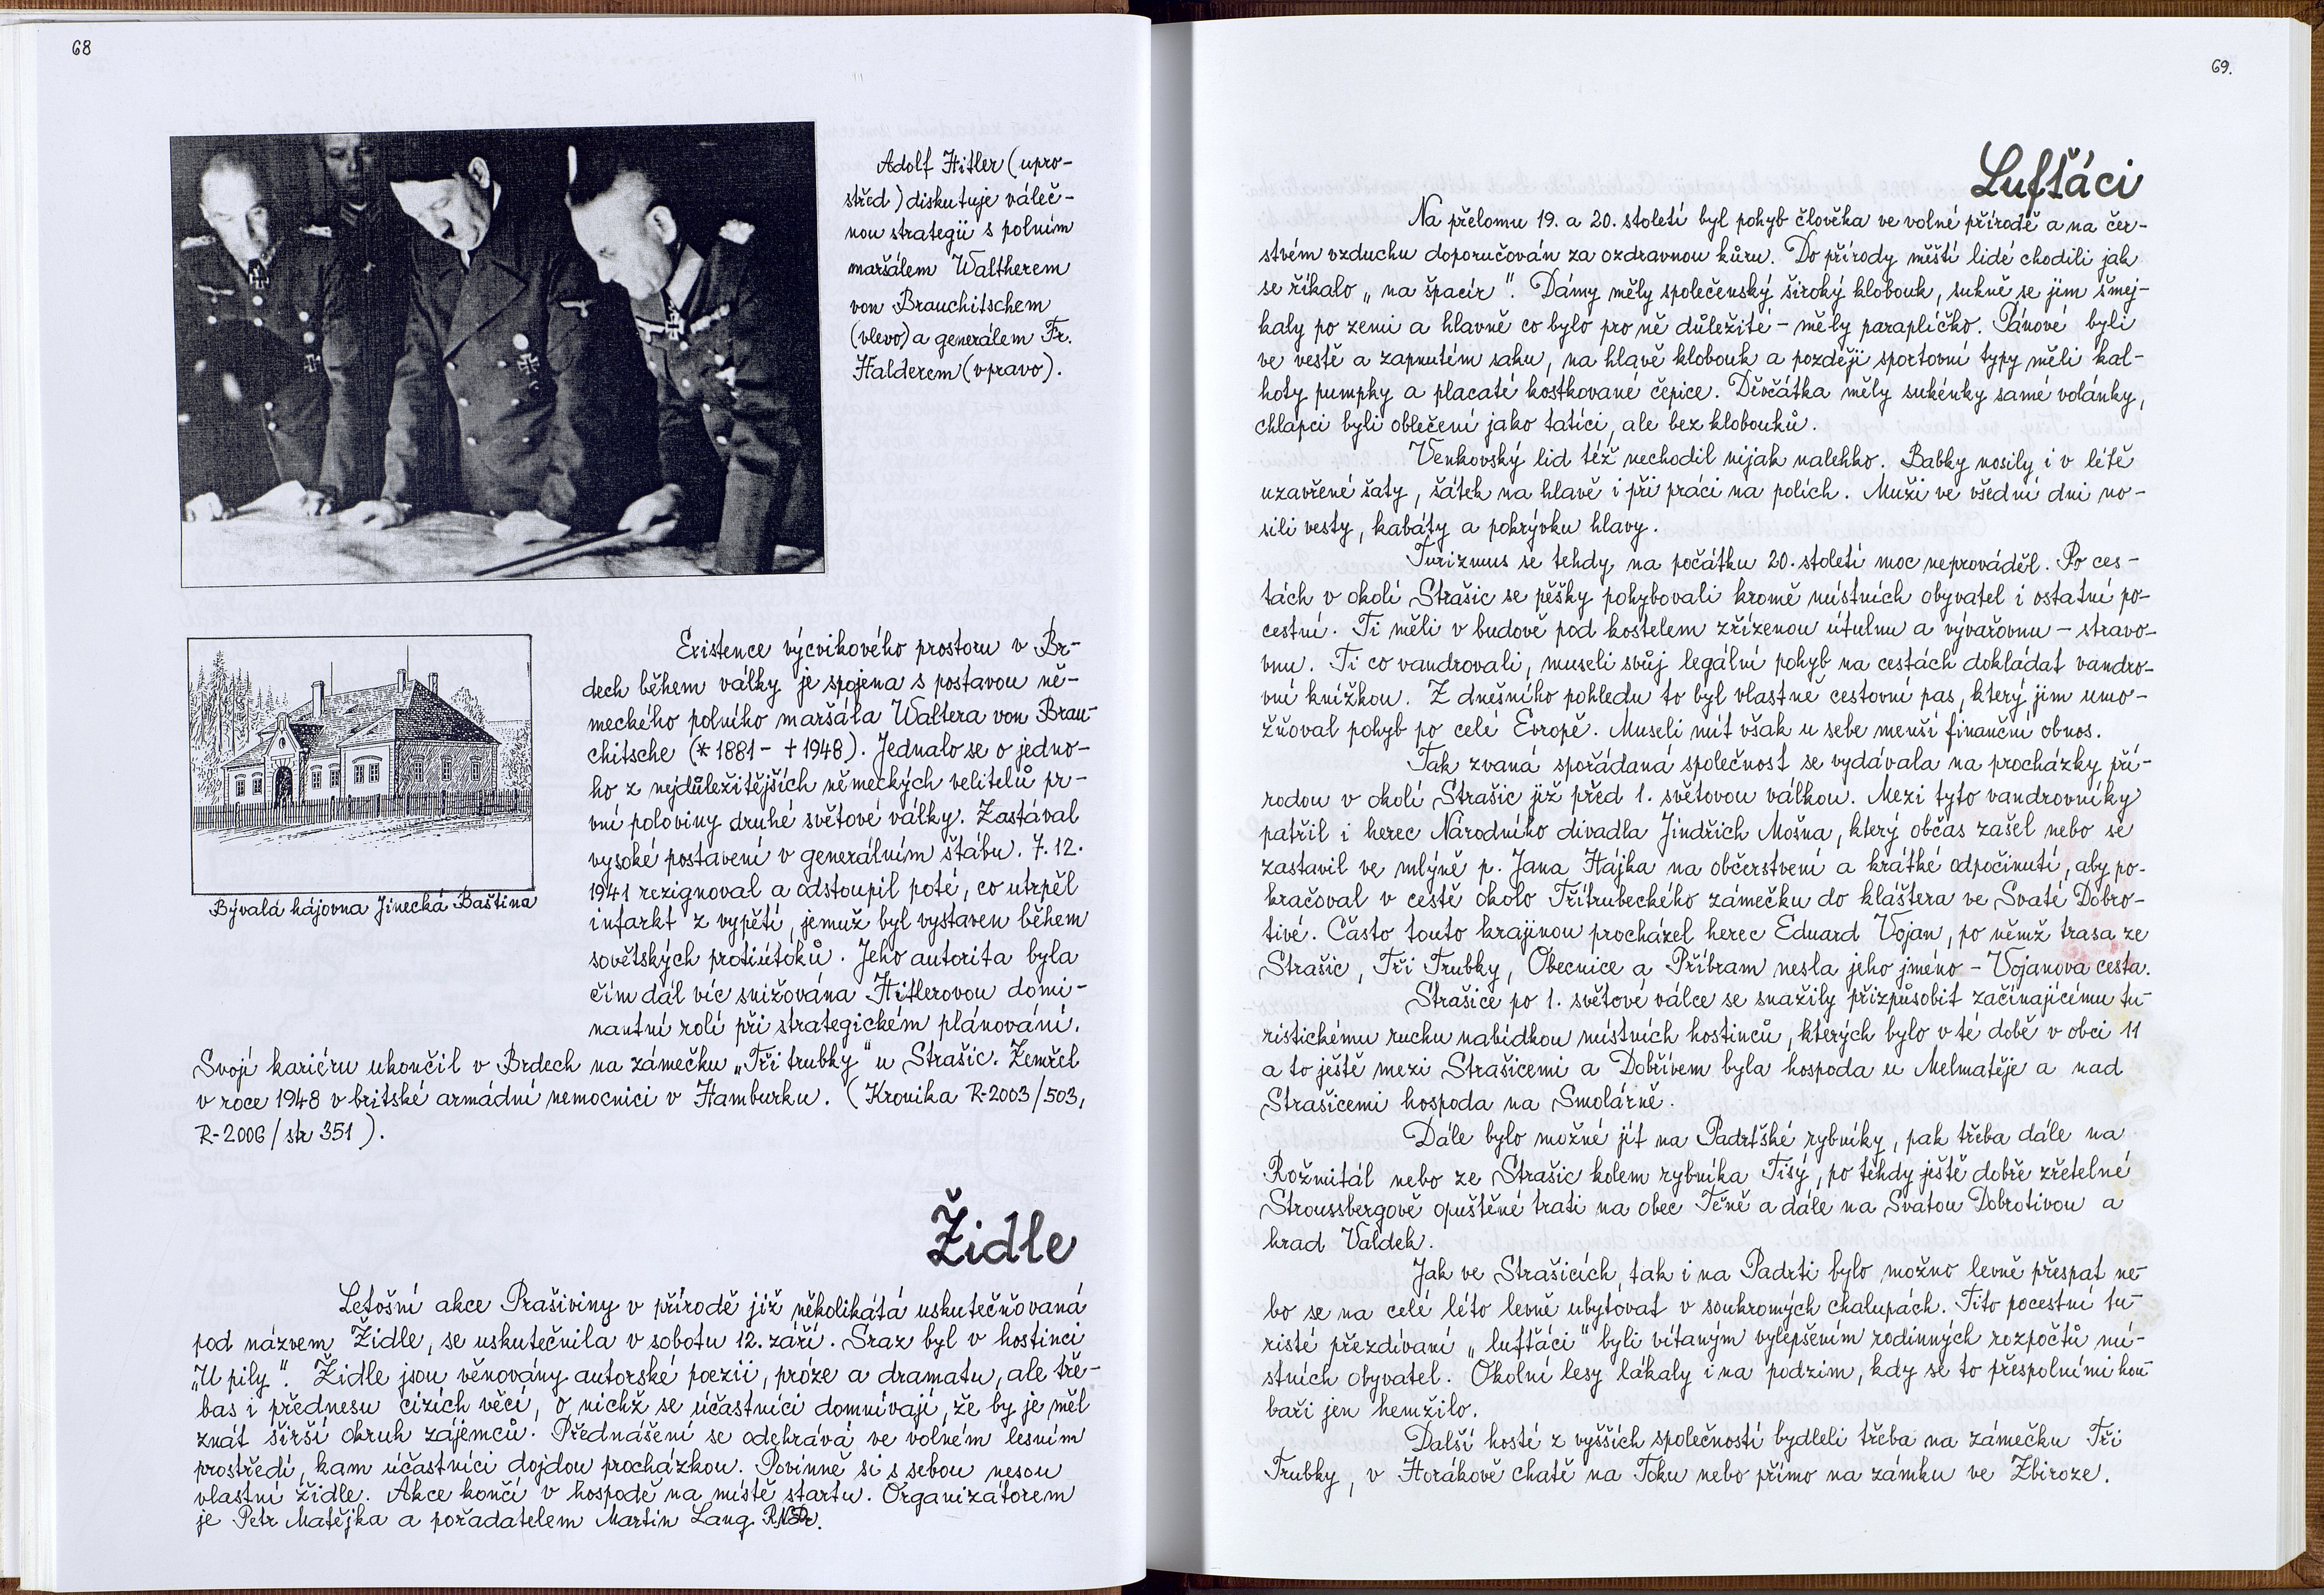 68
Adolf Hitler (upro-
střed) diskutuje váleč-
nou strategii s polním
maršálem Waltherem
von Brauchitschem
(vlevo) a generálem Fr.
Halderem (vpravo).
Existence výcvikového prostoru v Br-
dech během války je spojena s postavou ně-
meckého polního maršála Waltera von Brau-
chitsche (*1881 - †1948). Jednalo se o jedno-
ho z nejdůležitějších německých velitelů pr-
vní poloviny druhé světové války. Zastával
vysoké postavení v generálním štábu. 7.12.
1941 rezignoval a odstoupil poté, co utrpěl
infarkt z vypětí, jemuž byl vystaven během
sovětských protiútoků. Jeho autorita byla
čím dál víc snižována Hitlerovou domi-
nantní rolí při strategickém plánování.
Bývalá hájovna Jinecká Baština
Svojí kariéru ukončil v Brdech na zámečku „Tři trubky" u Strašic. Zemřel
v roce 1948 v britské armádní nemocnici v Hamburku. (Kronika R-2003/503,
R-2006/str 351).
Židle
Letošní akce Prašiviny v přírodě již několikátá uskutečňovaná
pod názvem Židle, se uskutečnila v sobotu 12. září. Sraz byl v hostinci
„U pily". Židle jsou věnovány autorské poezii, próze a dramatu, ale tře-
bas i přednesu cizích věcí, o nichž se účastníci domnívají, že by je měl
znát širší okruh zájemců. Přednášení se odehrává ve volném lesním
prostředí, kam účastníci dojdou procházkou. Povinně si s sebou nesou
vlastní židle. Akce končí v hospodě na místě startu. Organizátorem
je Petr Matějka a pořadatelem Martin Lang
69.
Lufťáci
Na přelomu 19. a 20. století byl pohyb člověka ve volné přírodě a na čer-
stvém vzduchu doporučován za ozdravnou kůru. Do přírody městí lidé chodili jak
se říkalo „na špacír". Dámy měly společenský široký klobouk, sukně se jim šmej-
kaly po zemi a hlavně co bylo pro ně důležité - měly paraplíčko. Pánové byli
ve vestě a zapnutém saku, na hlavě klobouk a později sportovní typy měli kal-
hoty pumpky a placaté kostkované čepice. Děvčátka měly sukénky samé volánky,
chlapci byli oblečení jako tatíci, ale bez klobouků.
Venkovský lid též nechodil nijak nalehko. Babky nosily i v létě
uzavřené šaty, šátek na hlavě i při práci na polích. Muži ve všední dni no-
sili vesty, kabáty a pokrývku hlavy.
Turizmus se tehdy na počátku 20. století moc neprováděl. Po ces-
tách v okolí Strašic se pěšky pohybovali kromě místních obyvatel i ostatní po-
cestní. Ti měli v budově pod kostelem zřízenou útulnu a vývařovnu - stravo-
vnu. Ti co vandrovali, museli svůj legální pohyb na cestách dokládat vandro-
vní knížkou. Z dnešního pohledu to byl vlastně cestovní pas, který jim umo-
žňoval pohyb po celé Evropě. Museli mít však u sebe menší finanční obnos.
Tak zvaná spořádaná společnost se vydávala na procházky pří-
rodou v okolí Strašic již před 1. světovou válkou. Mezi tyto vandrovníky
patřil i herec Národního divadla Jindřich Mošna, který občas zašel nebo se
zastavil ve mlýně p. Jana Hájka na občerstvení a krátké odpočinutí, aby po-
kračoval v cestě okolo Třítrubeckého zámečku do kláštera ve Svaté Dobro-
tivé. Často touto krajinou procházel herec Eduard Vojan, po němž trasa ze
Strašic, Tři Trubky, Obecnice a Příbram nesla jeho jméno - Vojanova cesta.
Strašice po 1. světové válce se snažily přizpůsobit začínajícímu tu-
ristickému ruchu nabídkou místních hostinců, kterých bylo v té době v obci 11
a to ještě mezi Strašicemi a Dobřívem byla hospoda u Melmatěje a nad
Strašicemi hospoda na Smolárně.
Dále bylo možné jít na Padrťské rybníky, pak třeba dále na
Rožmitál nebo ze Strašic kolem rybníka Tisý, po tehdy ještě dobře zřetelné
Stroussbergově opuštěné trati na obec Těně a dále na Svatou Dobrotivou a
hrad Valdek.
Jak ve Strašicích, tak i na Padrti bylo možno levně přespat ne-
bo se na celé léto levně ubytovat v soukromých chalupách. Tito pocestní tu-
risté přezdívaní „lufťáci" byli vítaným vylepšením rodinných rozpočtů mí-
stních obyvatel. Okolní lesy lákaly i na podzim, kdy se to přespolními hou-
baři jen hemžilo.
Další hosté z vyšších společností bydleli třeba na zámečku Tři
Trubky, v Horákově chatě na Toku nebo přímo na zámku ve Zbiroze.